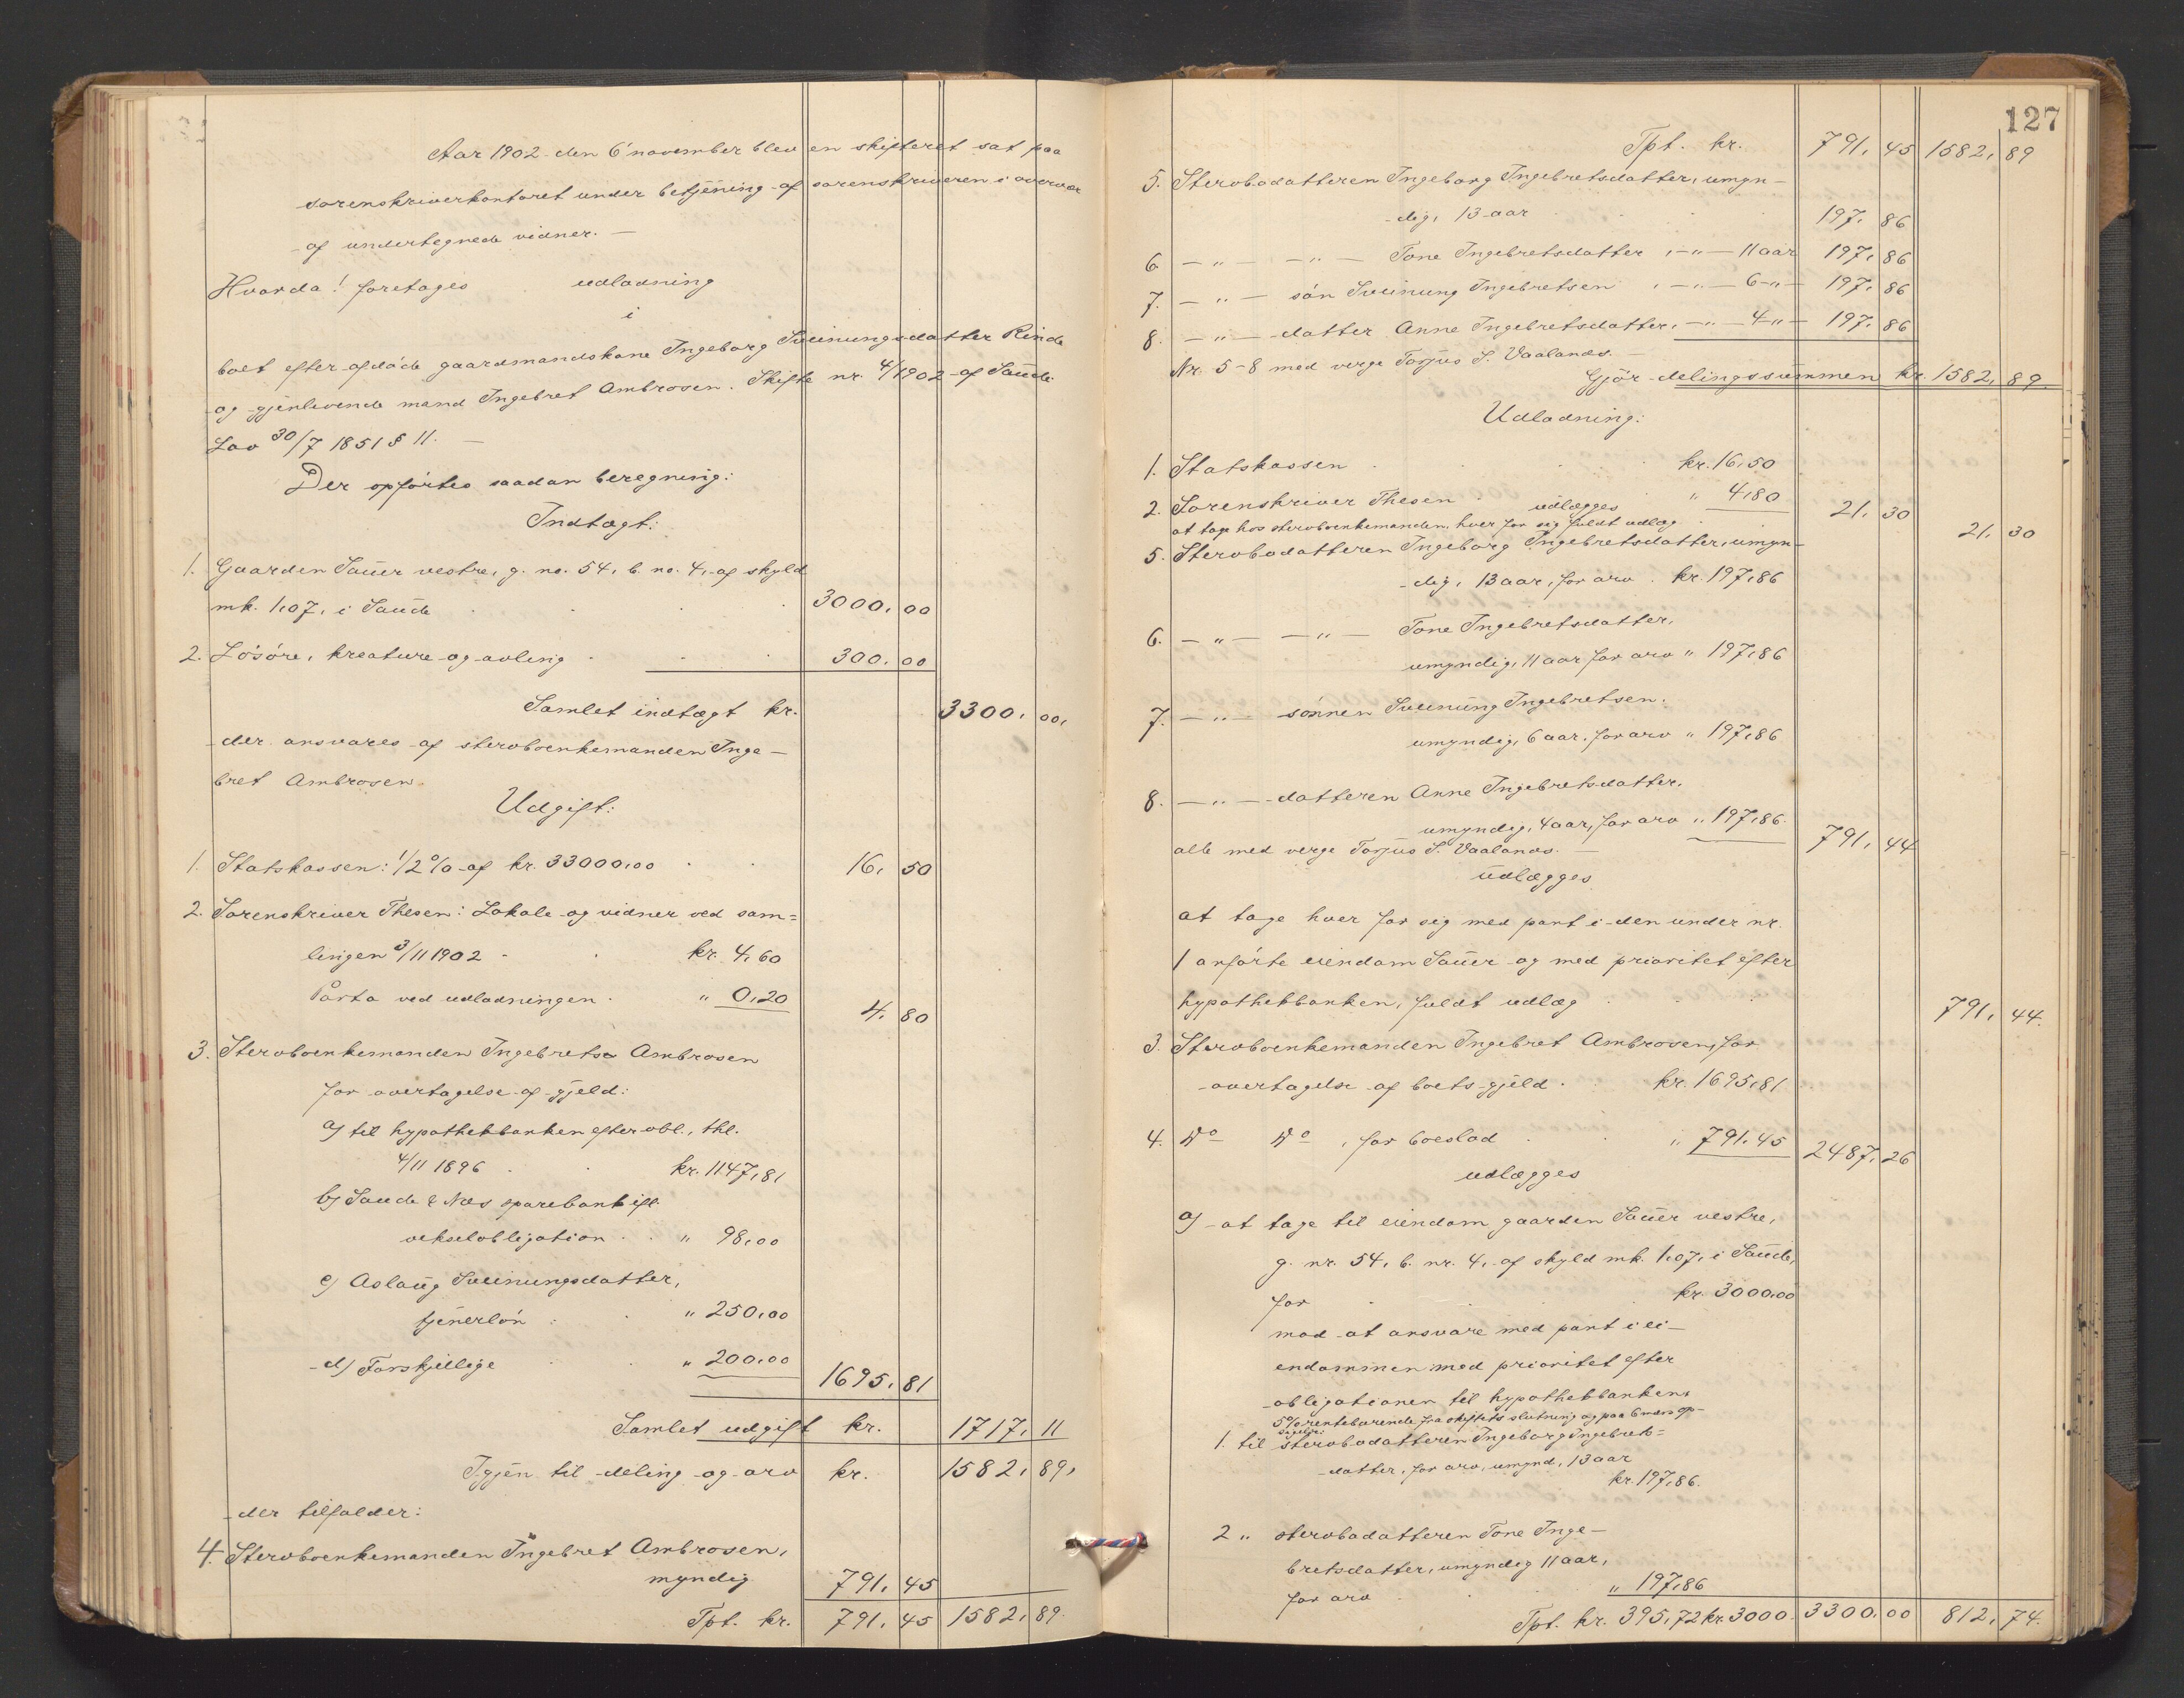 Aar 1902 den 6' november blev en skifteret sat paa
sorenskriverkontoret under betjening af sorenskriveren i overvær
af undertegnede vidner. —
Hvorda! foretages udlodning
i
boet efter afdøde gaardmandskone Ingeborg Sveinungsdatter Rinde
og gjenlevende mand Ingebret Ambrosen. Skifte nr. 4/1902 af Saude.
Lov 30/7 1851 § 11. —
Der opførtes saadan beregning:
Indtægt:
1. Gaarden Sauer vestre, g. no. 54, b. no. 4, af skyld
mk. 1,07, i Saude 3000,00
2. Løsøre, kreature og avling 300,00
Samlet indtægt kr. 3300,00,
der ansvares af stervboenkemanden Inge-
bret Ambrosen.
Udgift:
1. Statskassen: 1/2 % af kr. 33000,00 16,50
2. Sorenskriver Thesen: Lokale og vidner ved sam=
lingen 3/11 1902 kr. 4,60
Porto ved udlodningen " 0,20 4,80
3. Stervboenkemanden Ingebret Ambrosen
for overtagelse af gjeld:
a) til hypothekbanken efter obl., thl.
4/11 1896 kr. 1147,81
b) Saude & Nes sparebank ifl.
vekselobligation " 98,00
c) Aslaug Sveinungsdatter,
tjenerløn " 250,00
d) Forskjellige " 200,00 1695,81
Samlet udgift kr. 1717,11
Igjen til deling og arv kr. 1582,89,
der tilfalder:
4. Stervboenkemanden Ingebret Ambrosen,
myndig 791,45
Tpt. kr. 791,45 1582,89.
127
Tpt. kr. 791,45 1582,89
5. Stervbodatteren Ingeborg Ingebretsdatter, umyn-
dig, 13 aar 197,86
6. — " — — " — Tone Ingebretsdatter, — " — 11 aar 197,86
7. — " — søn Sveinung Ingebretsen, — " — 6 — " — 197,86
8. — " — datter Anne Ingebretsdatter, — " — 4 " — 197,86
Nr. 5-8 med verge Torjus S. Vaalands. —
Gjør delingssummen kr. 1582,89.
Udlodning:
1. Statskassen kr. 16,50
2. Sorenskriver Thesen " 4,80 21,30
udlægges
at tage hos stervboenkemanden, hver for sig fuldt udlæg 21,30
5. Stervbodatteren Ingeborg Ingebretsdatter, umyn-
dig, 13 aar, for arv kr. 197,86
6. — " — — " — Tone Ingebretsdatter,
umyndig, 11 aar for arv " 197,86
7. — " — sønnen Sveinung Ingebretsen,
umyndig, 6 aar, for arv " 197,86
8. — " — datteren Anne Ingebretsdatter,
umyndig, 4 aar, for arv " 197,86.
alle med verge Torjus S. Vaalands. — 791,44
udlægges
at tage hver for sig med pant i den under nr.
1 anførte eiendom Sauer og med prioritet efter
hypothekbanken, fuldt udlæg 791,44.
3. Stervboenkemanden Ingebret Ambrosen, for
overtagelse af boets gjeld kr. 1695,81
4. Do Do, for boeslod " 791,45 2487,26
udlægges
a) at tage til eiendom gaarden Sauer vestre,
g. nr. 54, b. nr. 4, af skyld mk. 1,07, i Saude,
for kr. 3000,00
mod at ansvare med pant i ei-
endommen med prioritet efter
obligationen til hypothekbanken,
5% rentebærende fra skiftets slutning og paa 6 mdrs op-
sigelse:
1. til stervbodatteren Ingeborg Ingebrets=
datter, for arv, umynd, 13 aar
kr. 197,86.
2 " stervbodatteren Tone Inge-
bretsdatter, umyndig 11 aar,
for arv " 197,86
Tpt. kr. 395,72 kr. 3000. 3300,00 812,74.